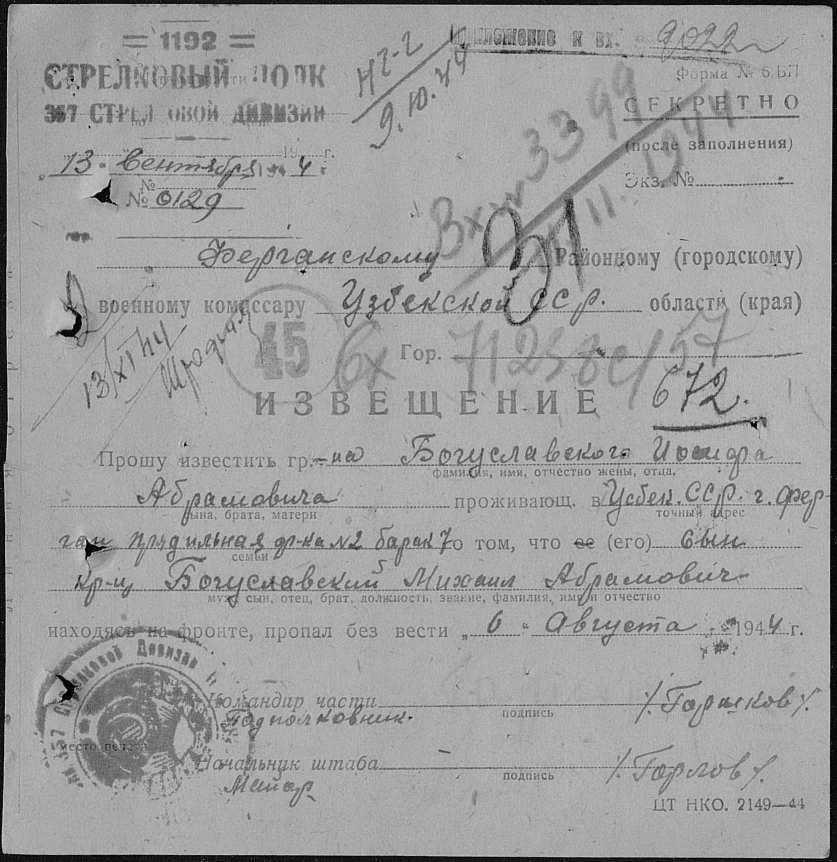 = 1192 =
СТРЕЛКОВЫЙ ПОЛК
357 СТРЕЛ ОВОЙ ДИВИЗИИ
Приложение к вх. 9022
Н2-2
9.10.44
Форма № 6/БП
СЕКРЕТНО
(после заполнения)
Экз. №
13 Сентября 194 4 г.
№ 0129
Вх № 3399
11 1944
31
Ферганскому Районному (городскому)
военному комиссару Узбекской ССР. области (края)
45
Гор.
13/XI 44
Вх 71258с/57
ИЗВЕЩЕНИЕ 672.
Прошу известить гр.-на Богуславского Иосифа
фамилия, имя, отчество жены, отца,
Абрамовича проживающ. в Узбек. ССР. г. Фер
сына, брата, матери точный адрес
ган прядильная ф-ка №2 барак 7 о том, что ее (его) сын
семьи
кр-ц Богуславский Михаил Абрамович
муж, сын, отец, брат, должность, звание, фамилия, имя и отчество
находясь на фронте, пропал без вести „ 6 " Августа 1944 г.
Командир части /Горшков/.
Подполковник. подпись
место печати
Начальник штаба /Горлов/.
Майор подпись
357 Стрелковой Дивизии
ЦТ НКО. 2149—44